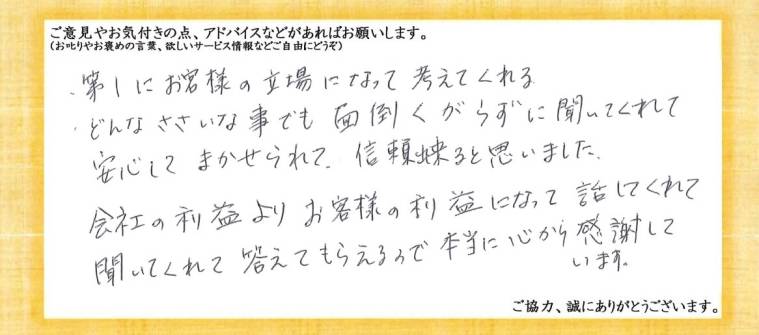 ご意見やお気付きの点、アドバイスなどがあればお願いします。
(お叱りやお褒めの言葉、欲しいサービス情報などご自由にどうぞ)
・第1にお客様の立場になって考えてくれる
・どんなささいな事でも面倒くがらずに聞いてくれて
安心してまかせられて、信頼出来ると思いました。
会社の利益よりお客様の利益になって話してくれて
聞いてくれて答えてもらえるので本当に心から感謝して
います。
ご協力、誠にありがとうございます。